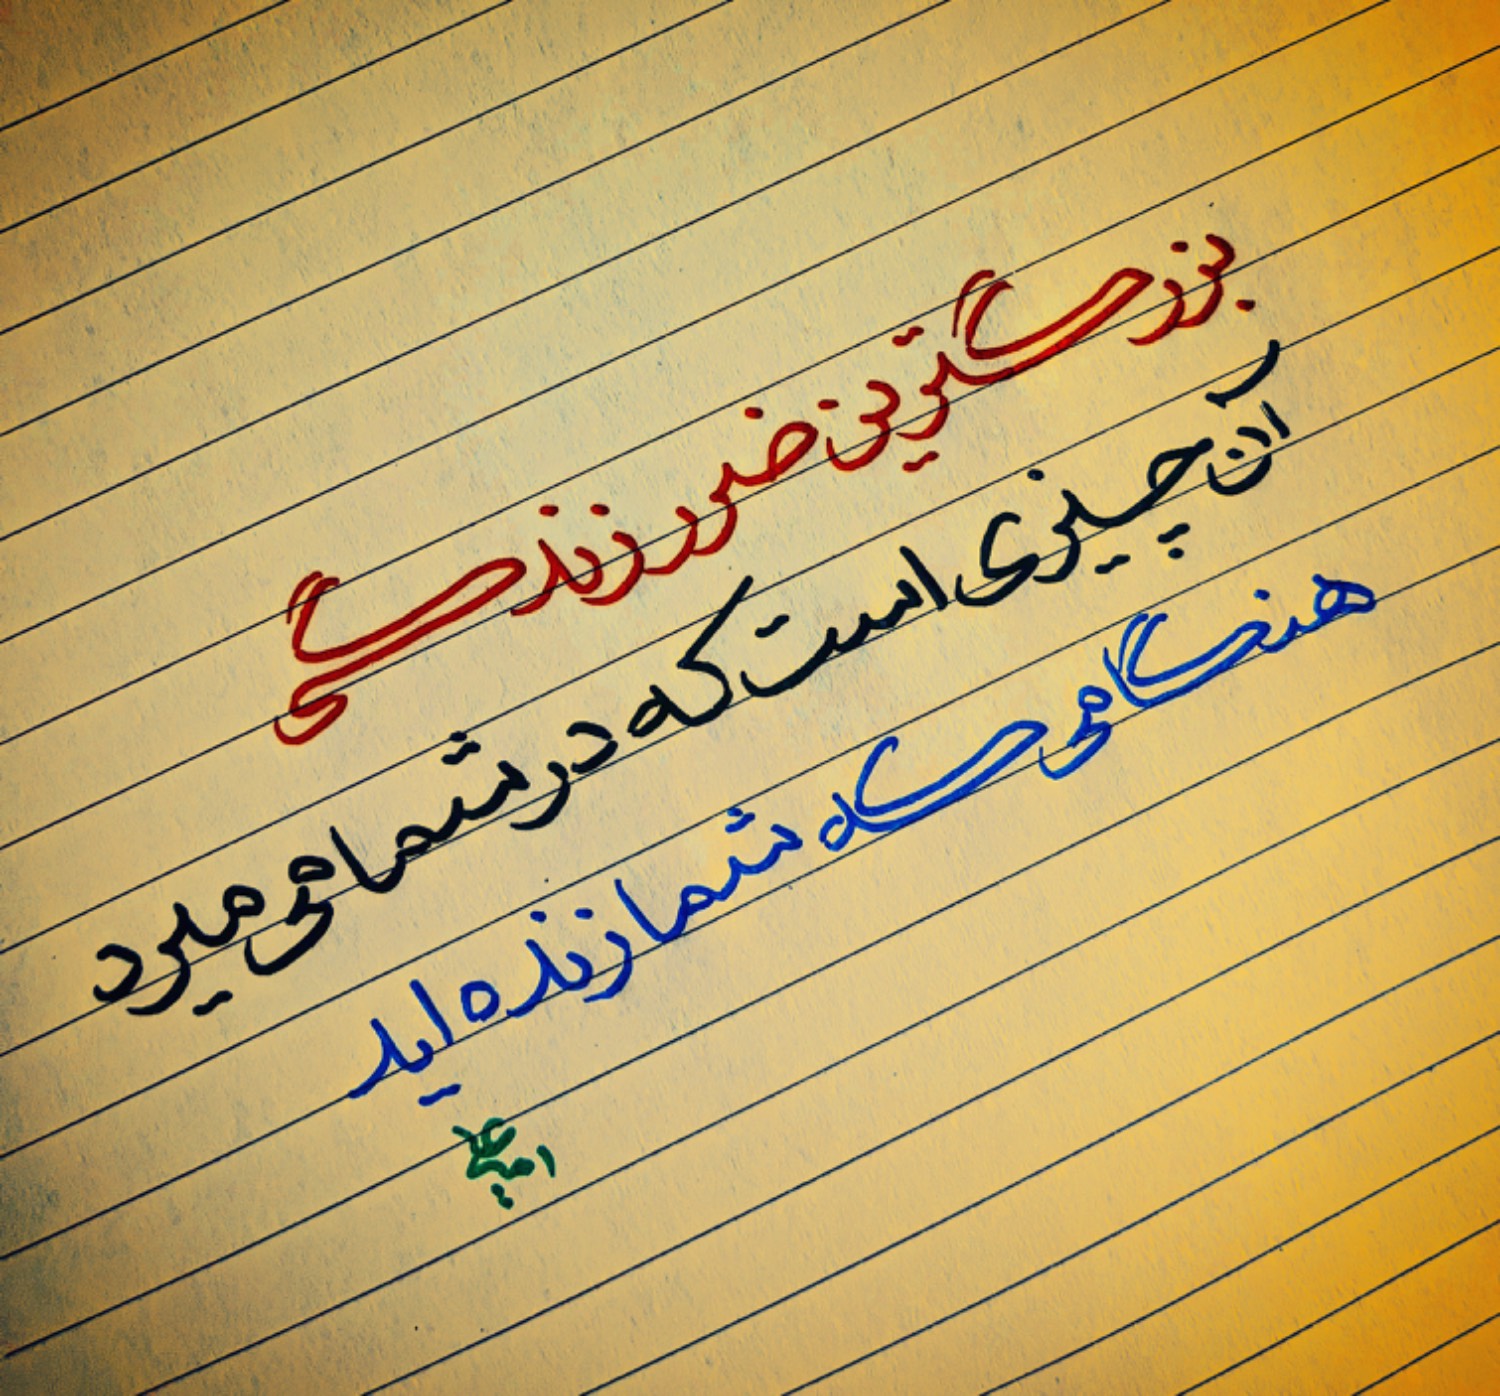 بزرگترین ضرر زندگی
آن چیزی است که در شما می میرد
هنگامی که شما زنده اید